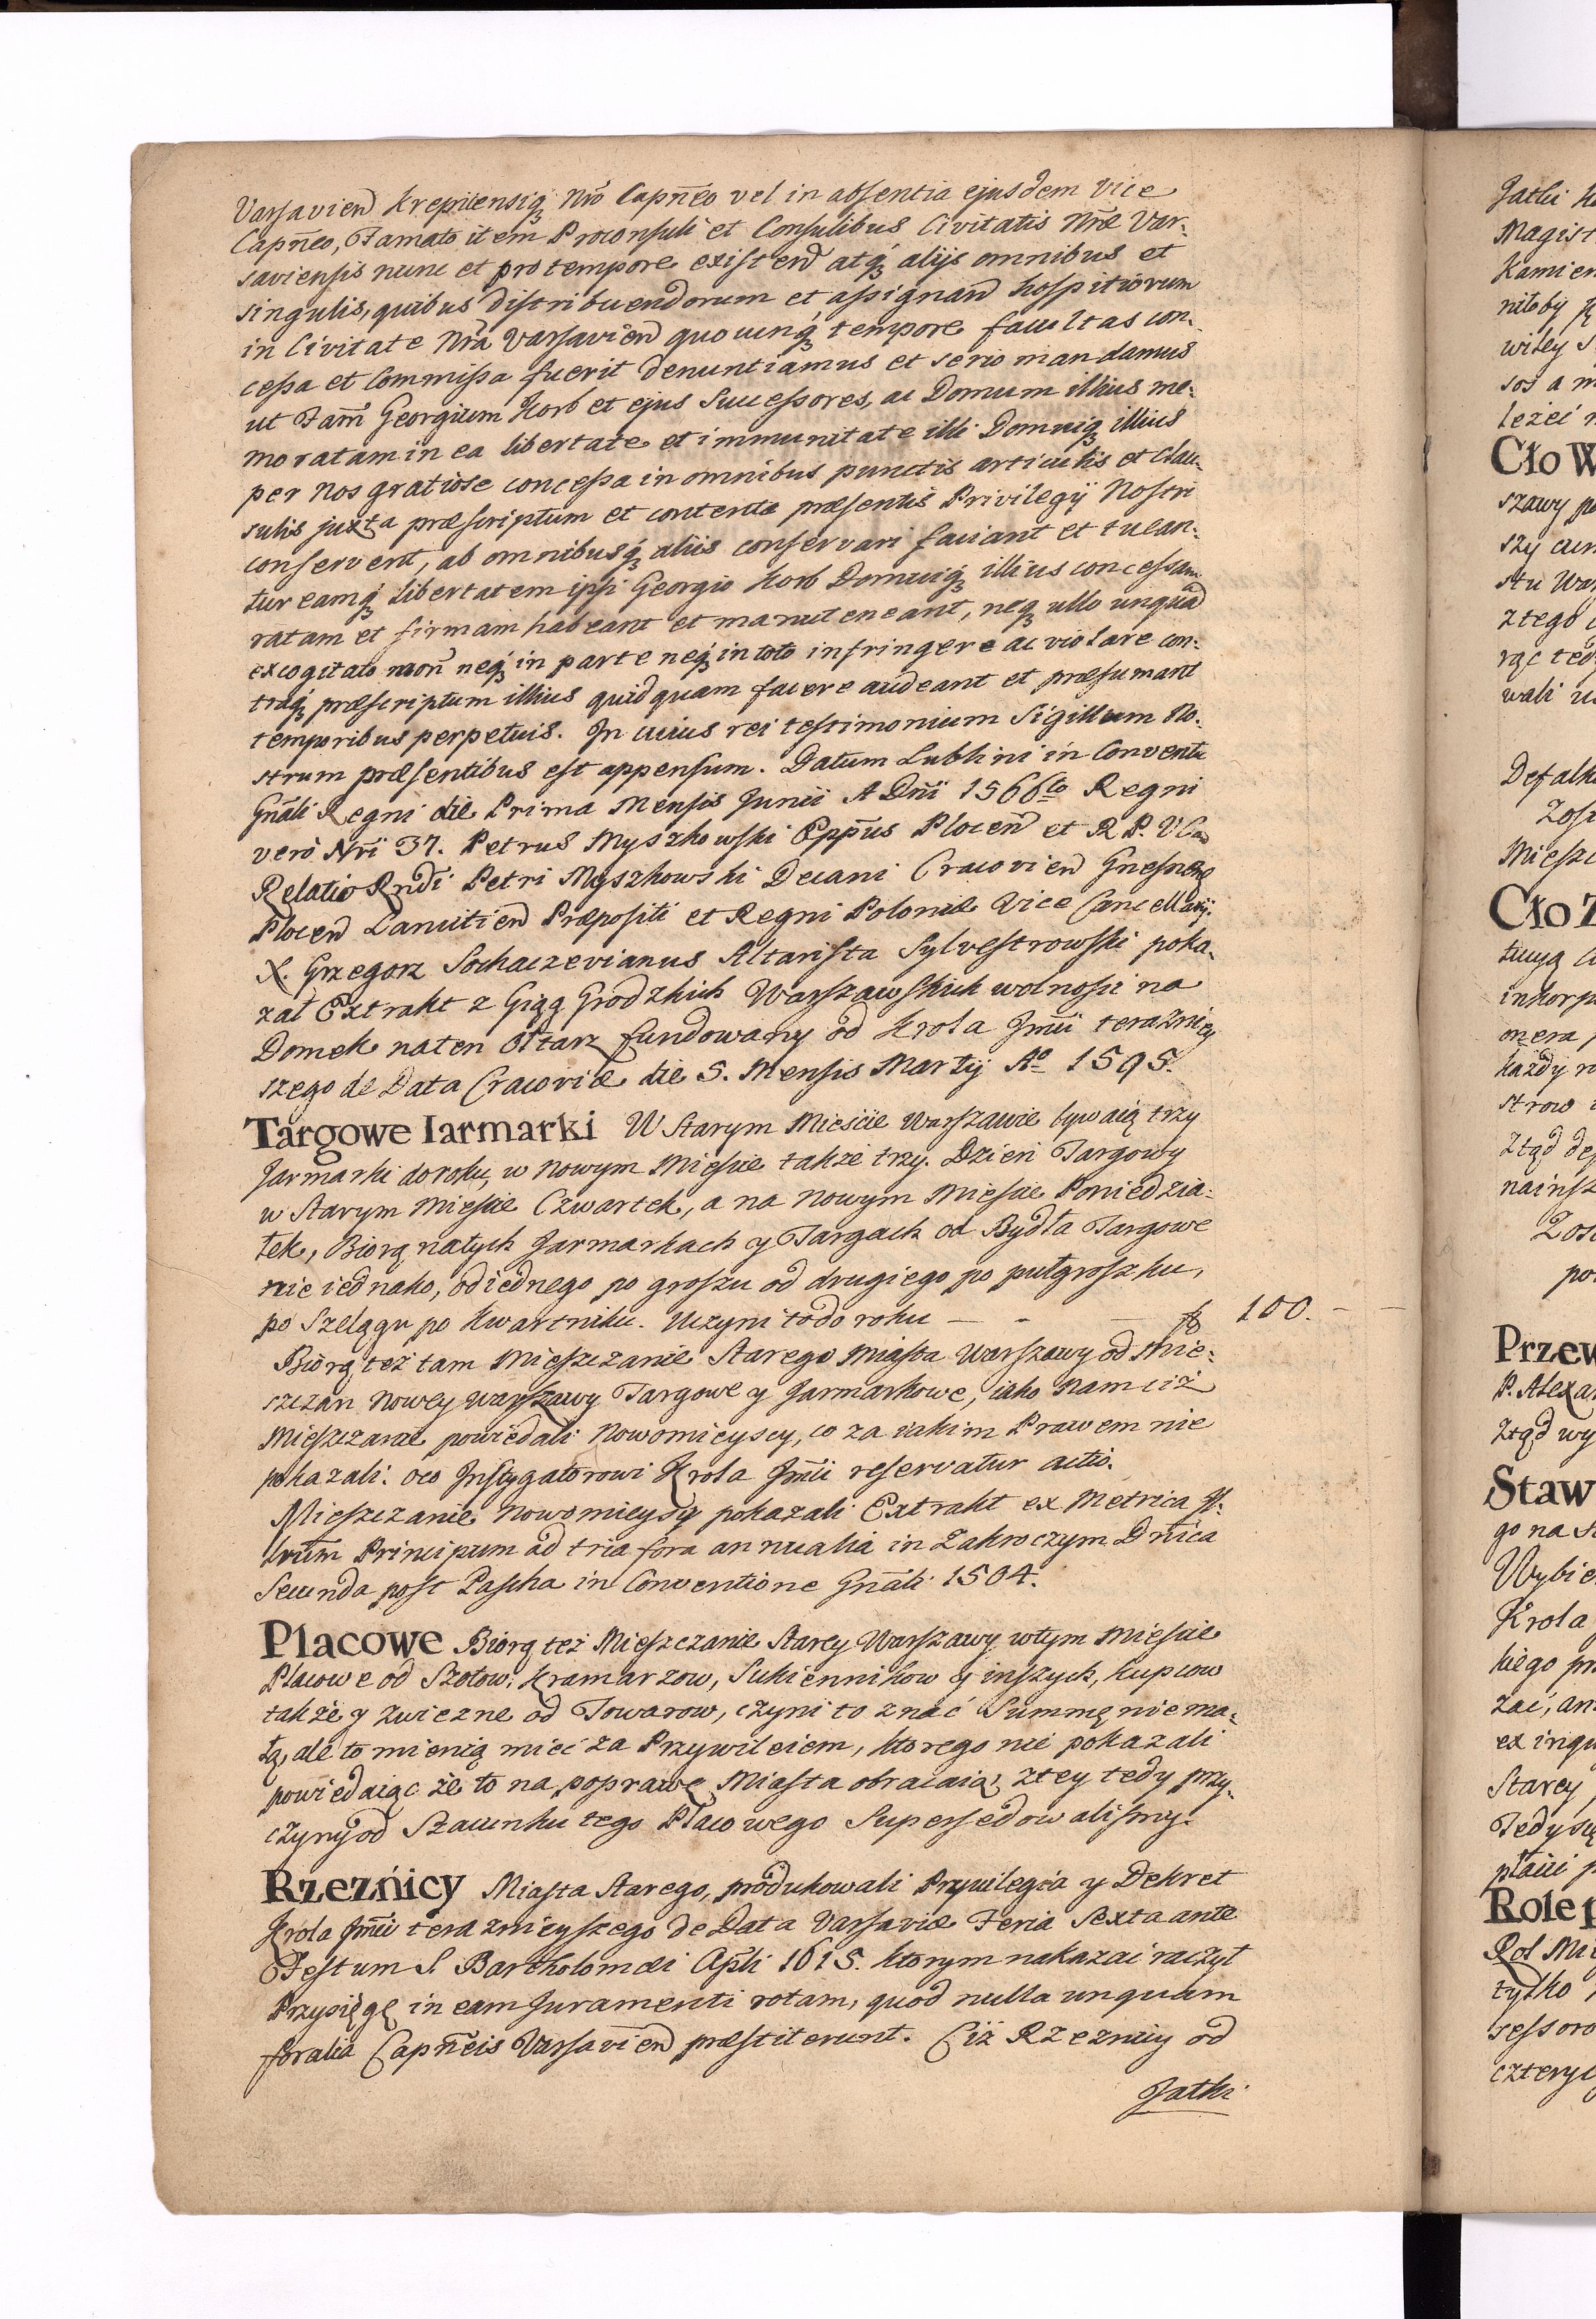 Varsavien Krepicensiq; Nro Capneo vel in absentia ejusdem Vice
Capneo, Famato item Proconsuli et Consulibus Civitatis Nræ Var:
saviensis nunc et pro tempore existen atq; aliis omnibus et
singulis, quibus distribuendorum et assignan hospitiorum
in Civitate Nra Varsavien quocunq; tempore facultas con:
cessa et Commissa fuerit denuntiamus et serio mandamus
ut Fam Georgium Korb et ejus Successores, ac Domum illius me:
moratam in ea libertate et immunitate illi Domuiq; illius
per Nos gratiose concessa in omnibus punctis articulis et Clau:
sulis juxta præscriptum et contenta præsentis Privilegij Nostri
conservent, ab omnibusq; aliis conservari faciant et tuean:
tur eamq; Libertatem ipsi Georgio Korb Domuiq; illius concessam
ratam et firmam habeant et manuteneant, neq; ullo unquã
excogitato mon neq; in parte neq; in toto infringere ac violare con:
traq; præscriptum illius quidquam facere audeant et præsumant
temporibus perpetuis. In cuius rei testimonium Sigillum No:
strum præsentibus est appensum. Datum Lublini in Conventu
Gnãli Regni die Prima Mensis Junii A Dni 1566to Regni
vero Nri 37. Petrus Myszkowski Eppus Plocen et R P. V Can
Relatio Rndi Petri Myszkowski Decani Cracovien Gnesnen
Plocen Lancitien Præpositi et Regni Poloniæ Vice Cancellarij.
X. Grzegorz Sochaczevianus Altarista Sylvestrowski poka:
zał Extrakt z Xiąg Grodzkich Warszawskich wolnosci na
Domek naten Ołtarz fundowany od Krola Jmci terazniey
szego de Data Cracoviæ die 5. Mensis Martij Ao 1595.
Targowe Iarmarki W Starym Mieście Warszawie bywaią trzy
Jarmarki do roku, w Nowym Mieście także trzy. Dzień Targowy
w Starym Mieście Czwartek, a na Nowym Mieście Poniedzia:
łek, Biorą natych Jarmarkach y Targach od Bydła Targowe
nie iednako, od iednego po groszu od drugiego po pułgroszku,
po Szelągu po Kwartniku. Uczyni to do roku — - — f 100. — —
Biorą też tam Mieszczanie Starego Miasta Warszawy od Mie:
szczan Nowey Warszawy Targowe y Jarmarkowe, iako Nam ciż
Mieszczanie powiedali Nowomieyscy, co za iakim Prawem nie
pokazali. oco Instygatorowi Krola Jmci reservatur actio.
Mieszczanie Nowomieyscy pokazali Extrakt ex Metrica Il:
lrum Principum ad tria fora annualia in Zakroczym Dnica
Secunda post Pascha in Conventione Gnali 1504.
Placowe Biorą też Mieszczanie Starey Warszawy wtym Mieście
Placowe od Szotow, Kramarzow, Sukiennikow y inszych, kupcow
także y zwiezne od Towarow, czyni to znać Summę niema:
łą, ale to mienią mieć za Przywileiem, ktorego nie pokazali
powiedaiąc że to na poprawę Miasta obracaią, ztey tedy przy:
czyny od Szacunku tego Placowego Supersedowalismy.
Rzeźnicy Miasta Starego, produkowali Przywilegia y Dekret
Krola Jmci teraznieyszego de Data Varsaviæ Feria Sexta ante
Festum S. Bartholomæi Apli 1615. ktorym nakazać raczył
Przysięgę in eam Juramenti rotam, quod nulla unquam
foralia Capneis Varsavien præstiterunt. Ciż Rzeznicy od
Jatki